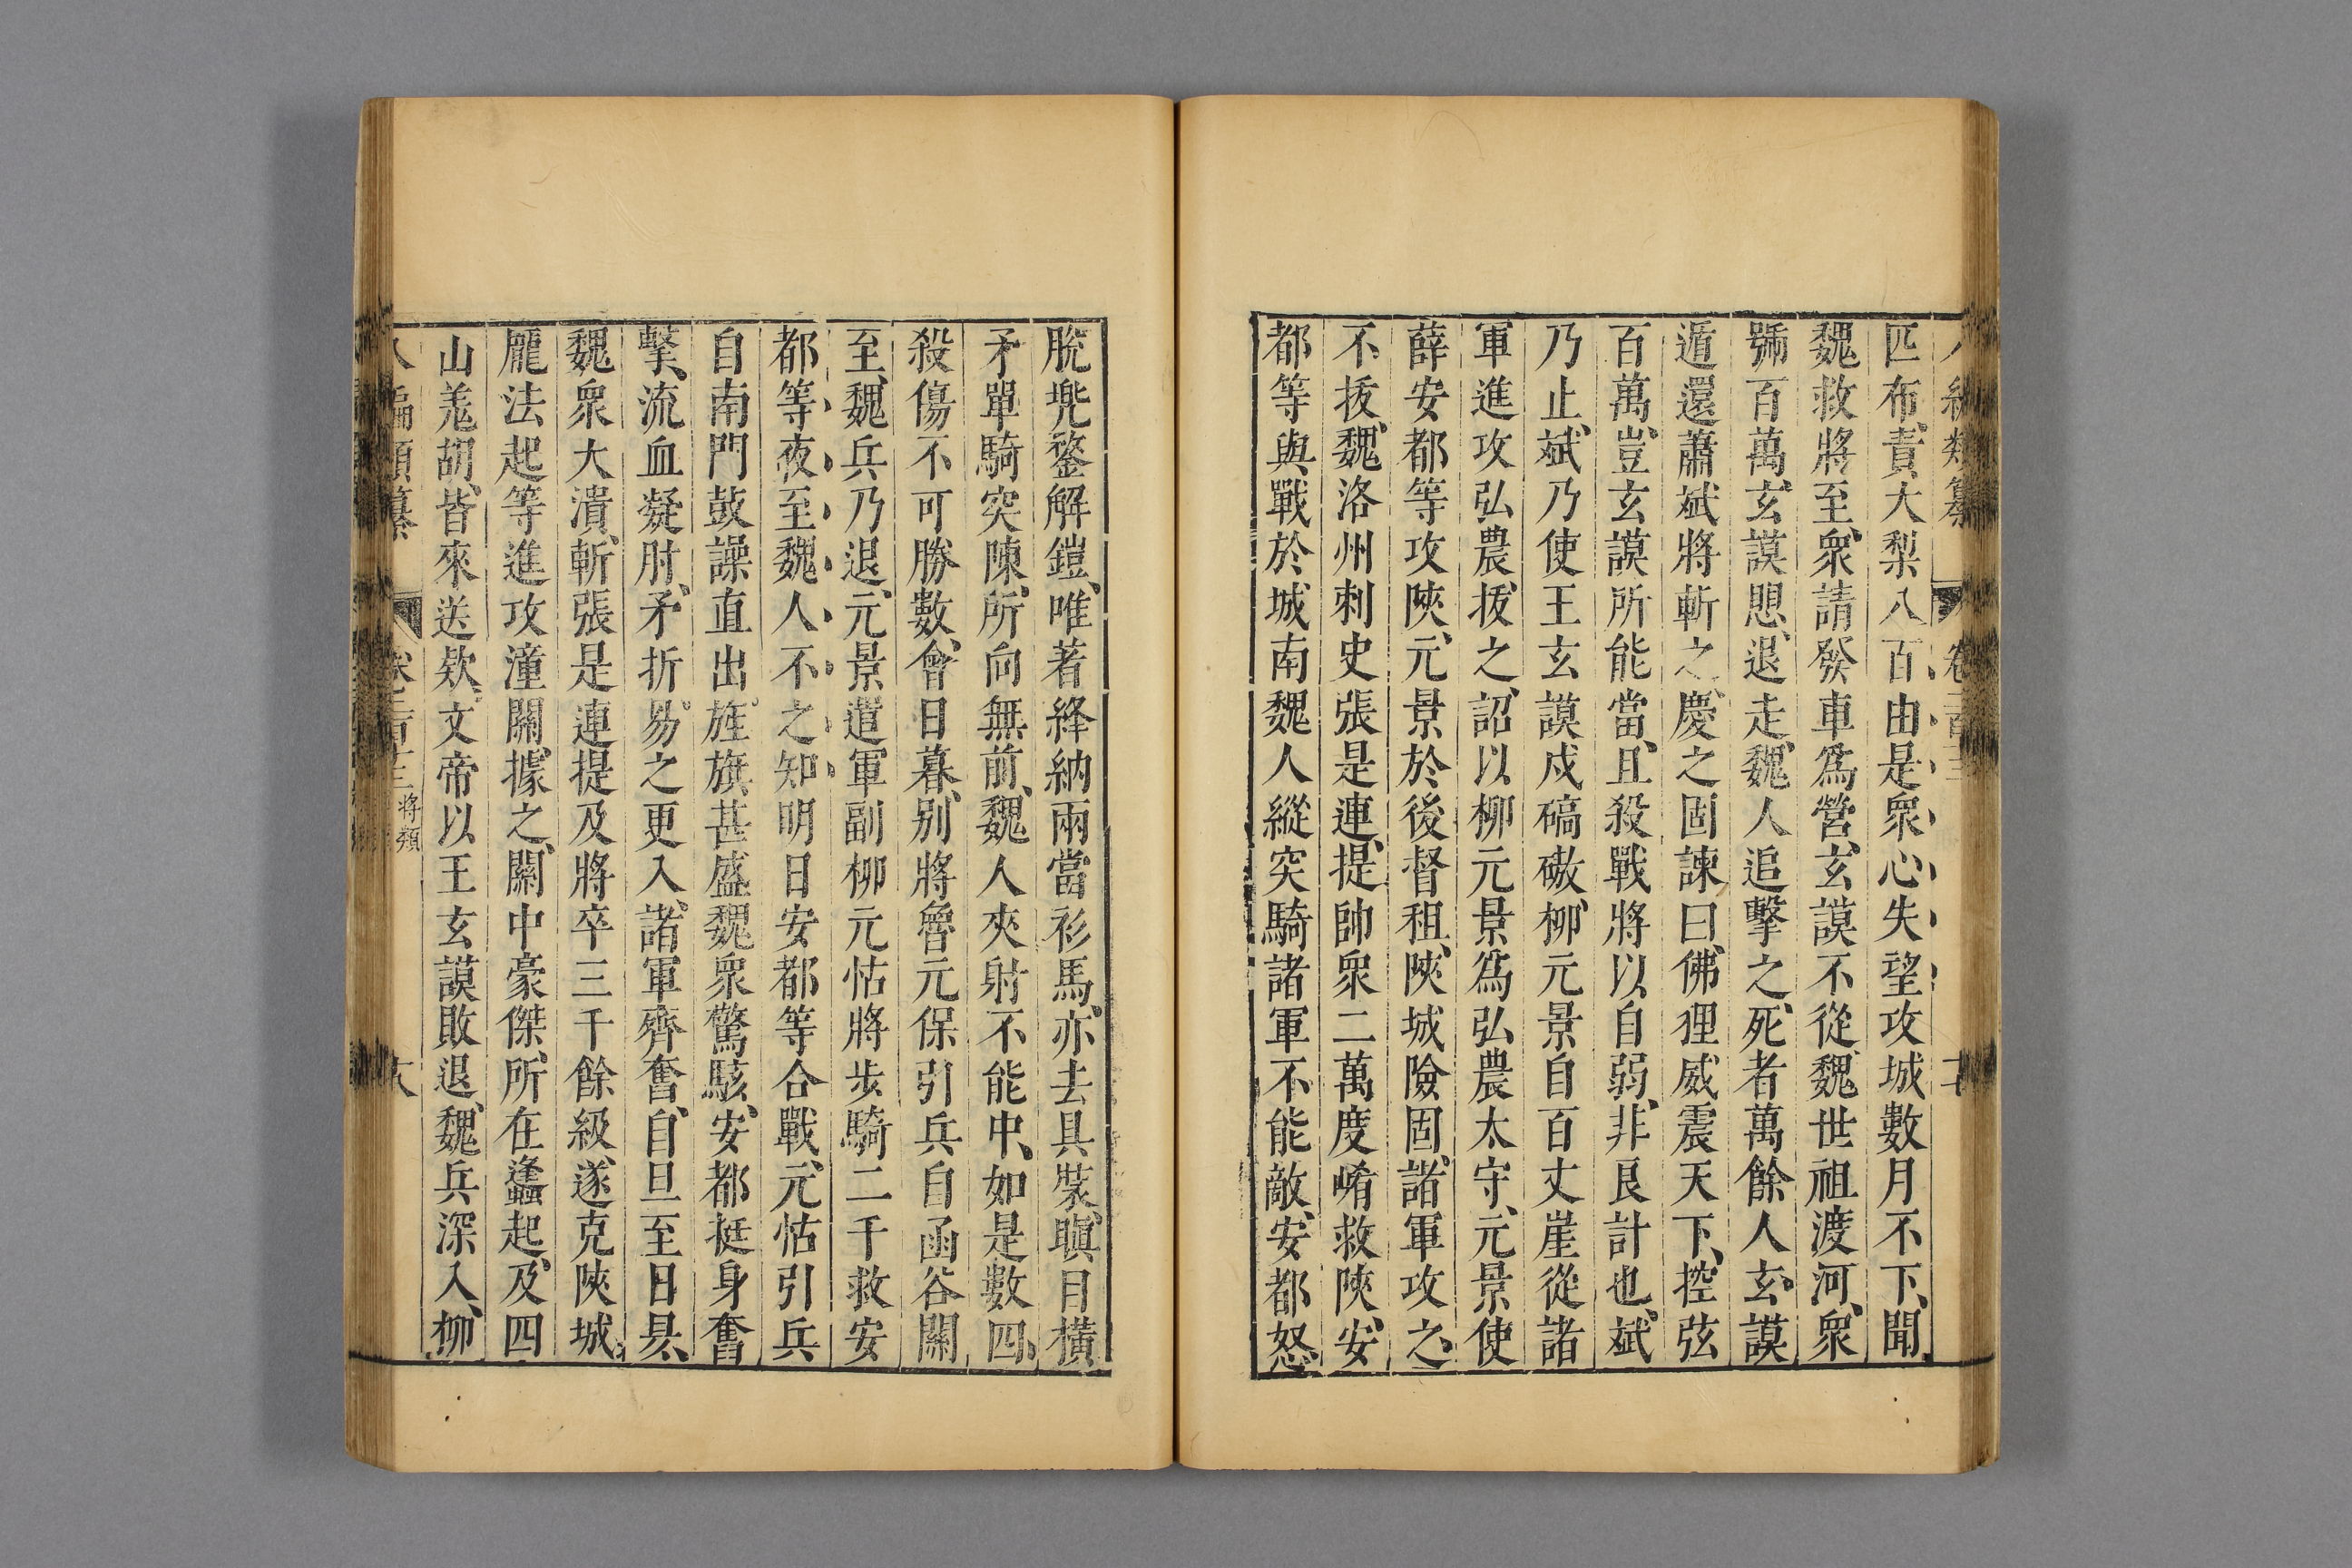 匹布責大梨八百由是衆心失望攻城數月不下聞
魏救將至衆請發車爲營玄謨不從魏世祖渡河衆
號百萬玄謨思退走魏人追擊之死者萬餘人玄謨
遁還蕭斌將斬之慶之固諫曰佛狸威震天下控弦
百萬豈玄謨所能當且殺戰將以自弱非良計也斌
乃止斌乃使王玄謨戍碻磝柳元景自百丈崖從諸
軍進攻弘農拔之詔以柳元景爲弘農太守元景使
薛安都等攻陝元景於後督租陝城險固諸軍攻之
不拔魏洛州刺史張是連提帥衆二萬度崤救陝安
都等與戰於城南魏人縱突騎諸軍不能敵安都怒
脫兠鍪解鎧唯著絳納兩當衫馬亦去具裝瞋目橫
矛單騎突陳所向無前魏人夾射不能中如是數四
殺傷不可勝數會日暮别將魯元保引兵自函谷關
至魏兵乃退元景遣軍副柳元怙將步騎二千救安
都等夜至魏人不之知明日安都等合戰元怙引兵
自南門鼓譟直出旌旗甚盛魏衆驚駭安都挺身奮
擊流血凝肘矛折易之更入諸軍齊奮自旦至日昃
魏衆大潰斬張是連提及將卒三千餘級遂克陝城
龐法起等進攻潼關據之關中豪傑所在蠭起及四
山羗胡皆來送欵文帝以王玄謨敗退魏兵深入柳
八編類纂 將類 十八